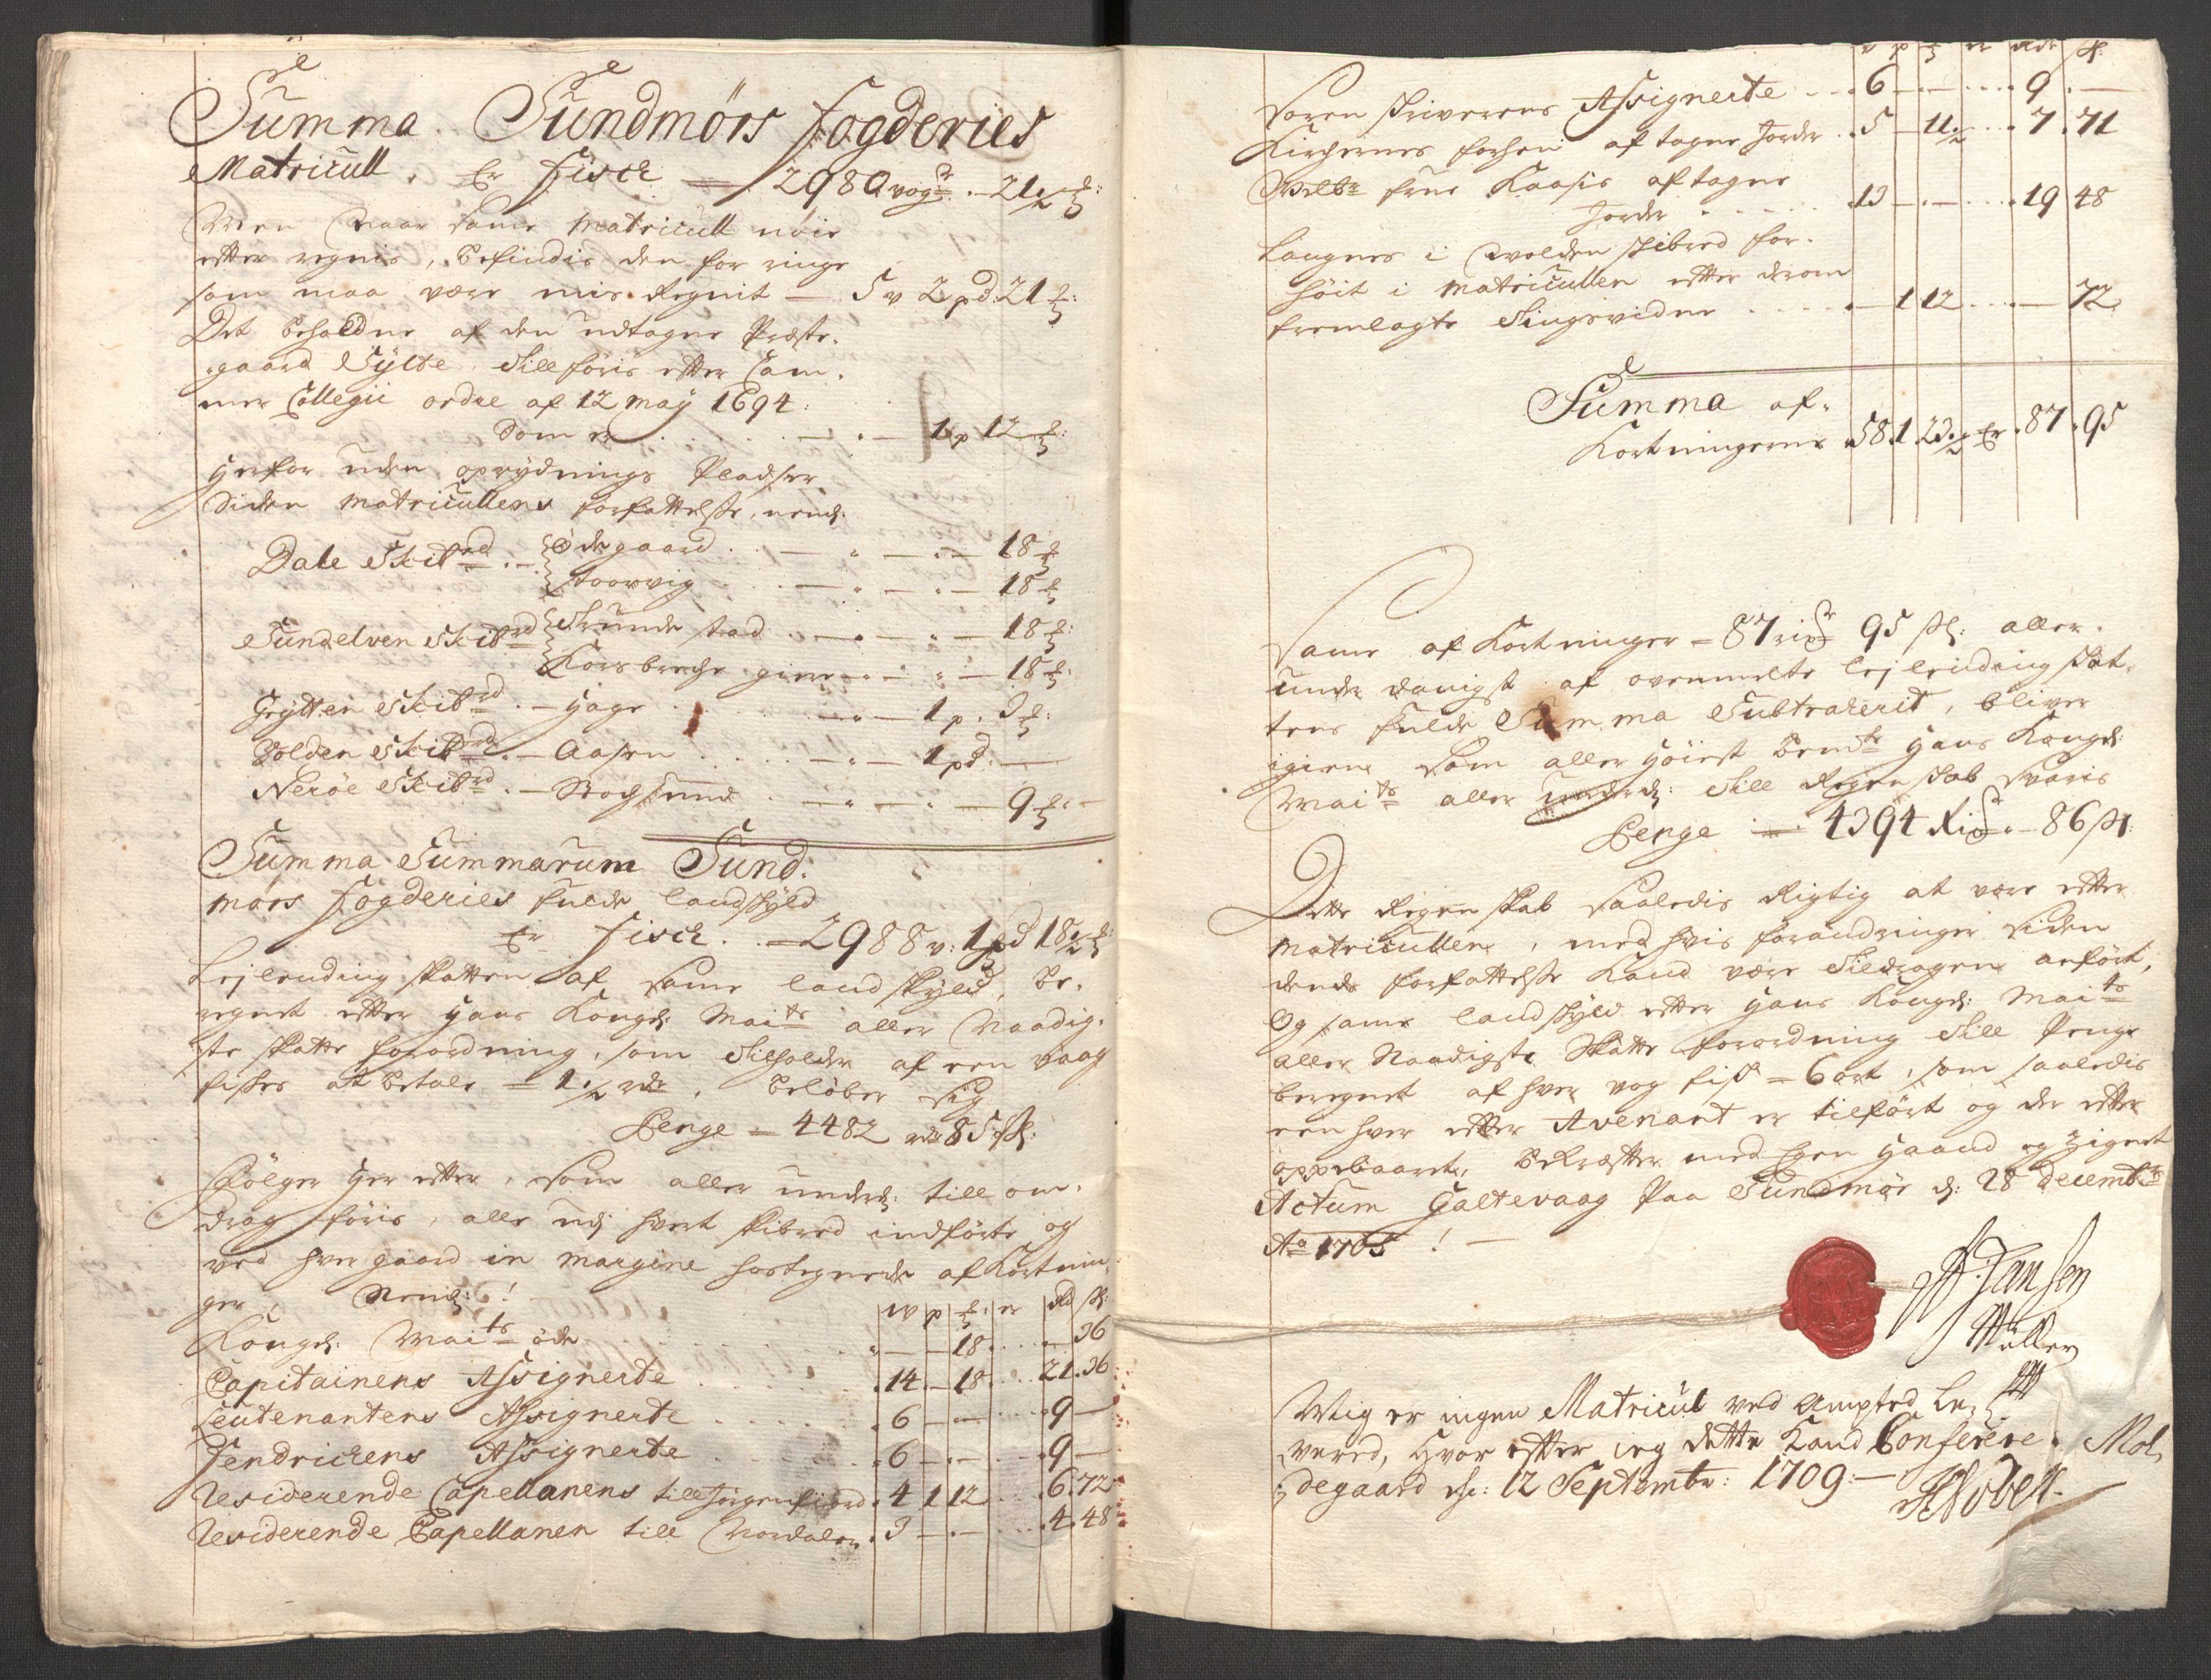 Summa Sundmørs fogderies
Matricull. Er fisch — 2980 vog — 21½ ℔:
Men Naar same Matricull nøie
efter regnis, befindis den for ringe
som maa være mis Regnit — 5 v 2 pd: 21 ℔:
Det beholdne af den udtagne Præste-
gaard Sylte, till føris efter Cam-
mer Collegii ordre af 12 maij 1694:
Som er . . . . — . — 1 p 12 ℔:
Herfor uden oprydnings Pladser
Siden Matricullens forfattelse, nemlig:
Dale Skibrd . — Ødegaard . . — . — . — 18 ℔
Stoorvig . . — . — . — 18 ℔
Sundelven Skibrd Strande stad . — . — . — 18 ℔:
Korsbreche giere — . — . — 18 ℔:
Grytten Skibrd . — Hage . . . — . — 1 p . 3 ℔:
Volden Skibrd . — Aasen . . . . — . — 1 pd: —
Nerøe Skibrd . — Bogsund . — . — . — 9 ℔: —
Summa Summarum Sund-
mørs fogderies fulde landskyld
Er fisch . . — 2988 v: 1 pd 18½ ℔:
Lejlending skatten af same landskyld, be-
regnet efter Hans Kongl: Maits aller Naadig-
ste skatte forordning, som tilholder af een vaag
fiskes at betale — 1½ rdr, beløber sig
Penge — 4482 rdr 85 sk:
Følger Her efter, som aller underd: till om-
drag føris, alle udj hvert skibred indførte og
ved hver gaard in margine hostegnede afKortnin-
ger, Neml: !
w p ℔: er Rd sk:
Kongl: Maits øde . . . — — 18 . . — 36
Capitainens Assignerte . . . 14 . — 18 . . 21 . 36
Leutenantens Assignerte . . . 6 — — . . 9 —
Fendrichens Assignerte . . . 6 — . — . . 9 —
Residerende Capellanens till Jørgenfiord . 4 1 12 . . 6 . 72
Residerende Capellanen till Nordalen . 3 — . — . . 4 . 48
v p ℔ er Rdr sk:
Soren skriverens Assignerte . . . 6 — . — . . 9 . —
Kirchernes forhen aftagne Jorder . . 5 — 11½ . . 7 . 71
Velbr frue Kaasis aftagne
Jorder . . . . . 13 — . — . . 19 48
Langnes i Wolden skibred for-
høit i Matricullen efter derom
fremlagte Tingsvidne . . . . — 1 12 . . — 72
Summa af-
Kortningerne . 58 . 1 23½ Er . 87 . 95
Same af Kortninger — 87 rixdr 95 sk: aller-
under danigst af ovenmelte lejlending skat-
tens fulde Summa Subtraherit, bliver
igien, som aller Høiest bemte Hans Kongl:
Maits aller underd: till Regenskab svaris
Penge — 4394 Rixdr — 86 sk:
Dette Regenskab saaledis Rigtig at være efter
Matricullen, med hvis forandringer siden
dends forfattelse Kand være tildragen anført,
Og same landskyld efter Hans Kongl: Maits
aller Naadigste Skatte forordning till Penge
beregnet af hver vog fisk — 6 ort, som saaledis
een hver efter Avenant er tilført og der efter
oppebaaret, Bekræfter med Egen Haand og Zignet
Actum Galtevaag Paa Sundmør d: 28 decembr
Ao 1705 ! —
Jansen
Müller
Mig er ingen Matricul ved Ampted le-
vered, hvor efter jeg dette Kand Conferere. Mol-
degaard d: 12 Septembr: 1709: —